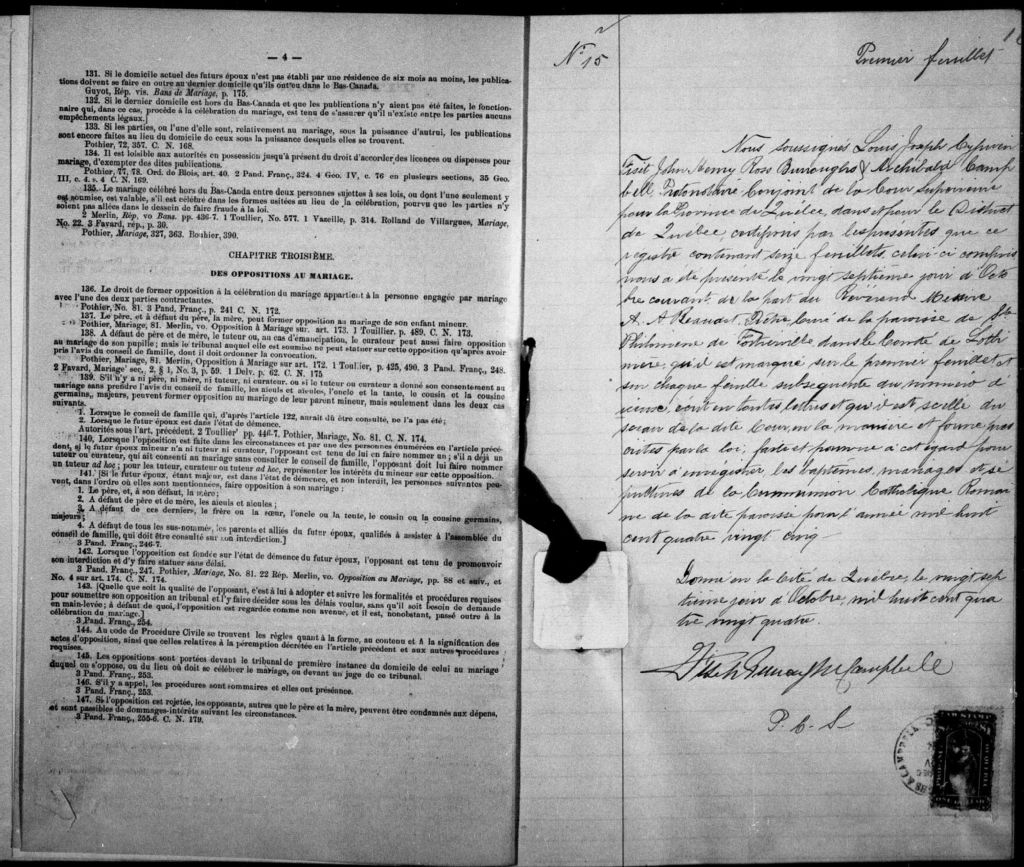 — 4 —
131. Si le domicile actuel des futurs époux n'est pas établi par une résidence de six mois au moins, les publica-
tions doivent se faire en outre au dernier domicile qu'ils ont eu dans le Bas-Canada.
Guyot, Rép. vis. Bans de Mariage, p. 175.
132. Si le dernier domicile est hors du Bas-Canada et que les publications n'y aient pas été faites, le fonction-
naire qui, dans ce cas, procède à la célébration du mariage, est tenu de s'assurer qu'il n'existe entre les parties aucuns
empêchements légaux.]
133. Si les parties, ou l'une d'elle sont, relativement au mariage, sous la puissance d'autrui, les publications
sont encore faites au lieu du domicile de ceux sous la puissance desquels elles se trouvent.
Pothier, 72, 357. C. N. 168.
134. Il est loisible aux autorités en possession jusqu'à présent du droit d'accorder des licences ou dispenses pour
mariage, d'exempter des dites publications.
Pothier, 77, 78. Ord. de Blois, art. 40. 2 Pand. Franç., 324. 4 Geo. IV, c. 76 en plusieurs sections, 35 Geo.
III, c. 4. s. 4 C. N. 169.
135. Le mariage célébré hors du Bas-Canda entre deux personnes sujettes à ses lois, ou dont l'une seulement y
est soumise, est valable, s'il est célébré dans les formes usitées au lieu de la célébration, pourvu que les parties n'y
soient pas allées dans le dessein de faire fraude à la loi.
2 Merlin, Rép, vo Bans. pp. 436-7. 1 Toullier, No. 577. 1 Vazeille, p. 314. Rolland de Villargues, Mariage,
No. 22. 3 Favard, rép., p. 30.
Pothier, Mariage, 327, 363. Bouhier, 390.
CHAPITRE TROISIÈME.
DES OPPOSITIONS AU MARIAGE.
136. Le droit de former opposition à la célébration du mariage appartient à la personne engagée par mariage
avec l'une des deux parties contractantes.
Pothier, No. 81. 3 Pand. Franç., p. 241 C. N. 172.
137. Le père, et à défaut du père, la mère, peut former opposition au mariage de son enfant mineur.
Pothier, Mariage, 81. Merlin, vo. Opposition à Mariage sur. art. 173. 1 Touillier, p. 489. C. N. 173.
138. A défaut de père et de mère, le tuteur ou, au cas d'émancipation, le curateur peut aussi faire opposition
au mariage de son pupille; mais le tribunal auquel elle est soumise ne peut statuer sur cette opposition qu'après avoir
pris l'avis du conseil de famille, dont il doit ordonner la convocation.
Pothier, Mariage, 81. Merlin, Opposition à Mariage sur art. 172. 1 Toullier, p. 425, 490. 3 Pand. Franç., 248.
2 Favard, Mariage sec, 2, § 1, No. 3, p. 59. 1 Delv. p. 62. C. N. 175
139. S'il n'y a ni père, ni mère, ni tuteur, ni curateur, ou si le tuteur ou curateur a donné son consentement au
mariage sans prendre l'avis du conseil de famille, les aïeuls et aïeules, l'oncle et la tante, le cousin et la cousine
germains, majeurs, peuvent former opposition au mariage de leur parent mineur, mais seulement dans les deux cas
suivants.
1. Lorsque le conseil de famille qui, d'après l'article 122, aurait dû être consulté, ne l'a pas été;
2. Lorsque le futur époux est dans l'état de démence.
Autorités sous l'art, précédent. 2 Toullier pp. 446-7. Pothier, Mariage, No. 81. C. N. 174.
140. Lorsque l'opposition est faite dans les circonstances et par une des personnes énumérées en l'article précé-
dent, si le futur époux mineur n'a ni tuteur ni curateur, l'opposant est tenu de lui en faire nommer un; s'il a déjà un
tuteur ou curateur, qui ait consenti au mariage sans consulter le conseil de famille, l'opposant doit lui faire nommer
un tuteur ad hoc; pour les tuteur, curateur ou tuteur ad hoc, représenter les intérêts du mineur sur cette opposition.
141. [Si le futur époux, étant majeur, est dans l'état de démence, et non interdit, les personnes suivantes peu-
vent, dans l'ordre où elles sont mentionnées, faire opposition à son mariage:
1. Le père, et, à son défaut, la mère;
2. A défaut de père et de mère, les aïeuls et aïeules;
3. A défaut de ces derniers, le frère ou la sœur, l'oncle ou la tante, le cousin ou la cousine germains,
majeurs;
4. A défaut de tous les sus-nommés, les parents et alliés du futur époux, qualifiés à assister à l'assemblée du
conseil de famille, qui doit être consulté sur son interdiction.]
3 Pand. Franç., 246-7.
142. Lorsque l'opposition est fondée sur l'état de démence du futur époux, l'opposant est tenu de promouvoir
son interdiction et d'y faire statuer sans délai.
3 Pand. Franç., 247. Pothier, Mariage, No. 81. 22 Rép. Merlin, vo. Opposition au Mariage, pp. 88 et suiv., et
No. 4 sur art. 174. C. N. 174.
143. [Quelle que soit la qualité de l'opposant, c'est à lui à adopter et suivre les formalités et procédures requises
pour soumettre son opposition au tribunal et l'y faire décider sous les délais voulus, sans qu'il soit besoin de demande
en main-levée; à défaut de quoi, l'opposition est regardée comme non avenue, et il est, nonobstant, passé outre à la
célébration du mariage.]
3 Pand. Franç., 254.
144. Au code de Procédure Civile se trouvent les règles quant à la forme, au contenu et à la signification des
actes d'opposition, ainsi que celles relatives à la péremption décrétée en l'article précédent et aux autres procédures
requises.
145. Les oppositions sont portées devant le tribunal de première instance du domicile de celui au mariage
duquel on s'oppose, ou du lieu où doit se célébrer le mariage, ou devant un juge de ce tribunal.
3 Pand. Franç., 253.
146. S'il y a appel, les procédures sont sommaires et elles ont préséance.
3 Pand. Franç., 253.
147. Si l'opposition est rejetée, les opposants, autres que le père et la mère, peuvent être condamnés aux dépens,
et sont passibles de dommages-intérêts suivant les circonstances.
3 Pand. Franç., 255-6. C. N. 179.
No 15
Premier feuillet
Nous soussignés Louis Joseph Cyprien
Fiset John Henry Ross Burroughs & Archibald Camp
bell Protonotaire Conjoint de la Cour Supérieure
pour la Province de Québec, dans et pour le District
de Québec, certifions par les présentes que ce
registre contenant seize feuillets, celui-ci compris
nous a été présenté le vingt septième jour d'Octo
bre courant de la part du Révérend Messire
A. A Beaudet, Ptre, Curé de la paroisse de Ste
Philomène de Fortierville dans le Comté de Lotbi
nière, qu'il est marqué sur le premier feuillet et
sur chaque feuille subséquente du numéro d'
icelle, écrit en toutes lettres et qu'il est scellé du
sceau de la dite Cour, en la manière et forme pres
crites par la loi, fait et paraphé à cet égard pour
servir à enregistrer les baptêmes, mariages et sé
pultures de la Communion Catholique Romai
ne de la dite paroisse pour l'année mil huit
cent quatre vingt cinq -
Donné en la Cité de Québec, le vingt sep
tième jour d'Octobre, mil huit cent qua
tre vingt quatre.
Fiset Burroughs Campbell
P. C. S